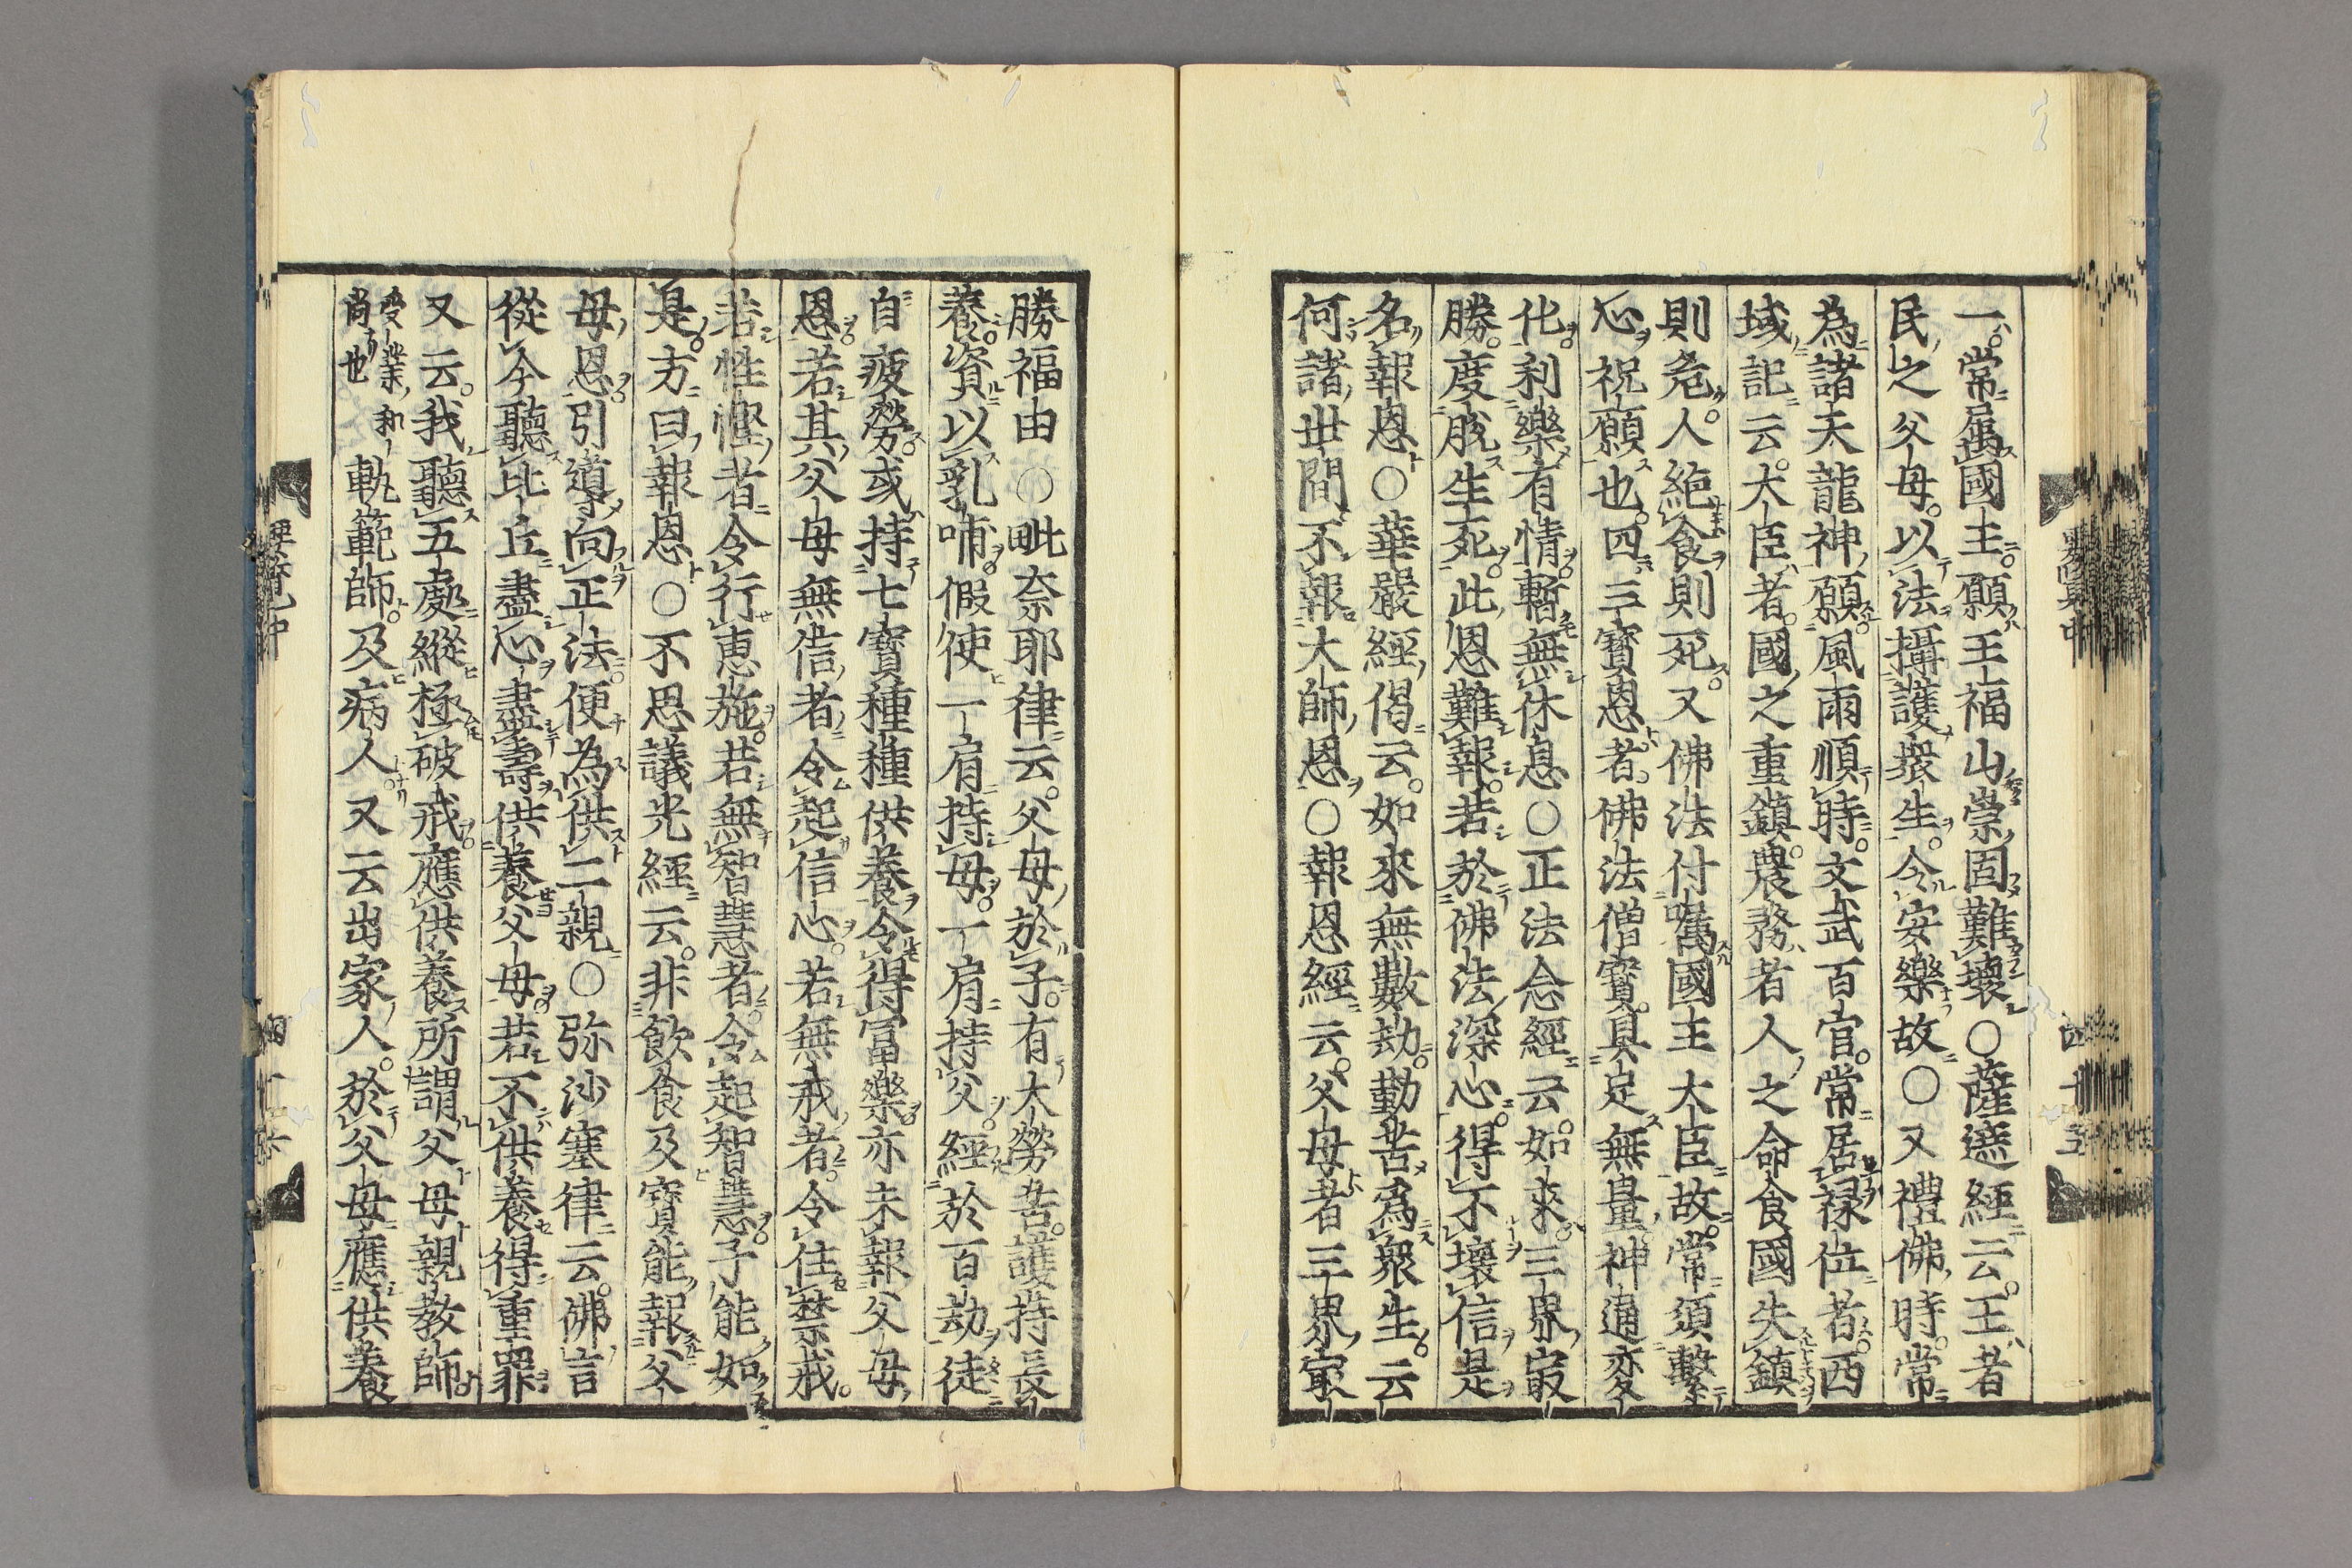 一常属國主願王福山崇固難壞○薩遮經云王者
民之父母以法攝護衆生令安樂故○又禮佛時常
為諸天龍神願風雨順時文武百官常居禄位者西
域記云大臣者國之重鎮農務者人之命食國失鎮
則危人絶食則死又佛法付囑國主大臣故常須繫
心祝願也四三寳恩者佛法僧寳具足無量神通変
化利樂有情暫無休息○正法念經云如來三界㝡
勝度脱生死此恩難報若於佛法深心得不壞信是
名報恩○華嚴經偈云如來無數劫勤苦為衆生云
何諸世間不報大師恩○報恩經云父母者三界㝡
勝福由○毗奈耶律云父母於子有大勞苦護持長
養資以乳哺假使一肩持母一肩持父經於百劫徒
自疲勞或持七寳種種供養令得冨樂亦未報父母
恩若其父母無信者令起信心若無戒者令住禁戒
若性慳者令行恵施若無智慧者令起智慧子能如
是方曰報恩○不思議光經云非飲食及寳能報父
母恩引導向正法便為供二親○弥沙塞律云佛言
從今聽比丘盡心盡壽供養父母若不供養得重罪
又云我聽五處縱極破戒應供養所謂父母親教師
受業和
尚也
軌範師及病人又云出家人於父母應供養